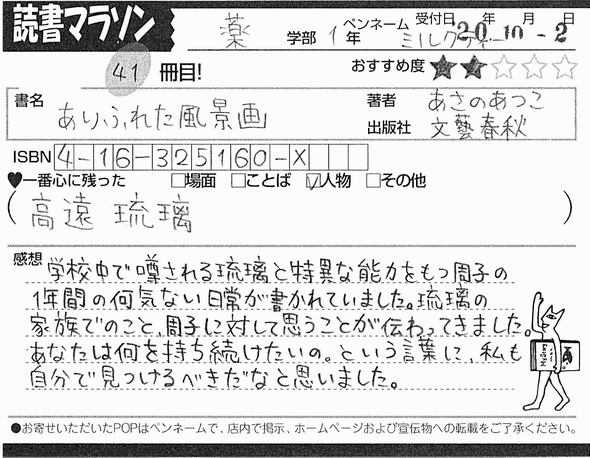 読書マラソン
薬 学部 1年 ペンネーム ミルクティー 受付日 年 月 日
20.10.-2
41 冊目! おすすめ度 ★★☆☆☆
書名 ありふれた風景画
著者 あさのあつこ
出版社 文藝春秋
ISBN 4-16-325160-X
♥一番心に残った □場面 □ことば ☑人物 □その他
(高遠 琉璃)
感想 学校中で噂される琉璃と特異な能力をもつ周子の
1年間の何気ない日常が書かれていました。琉璃の
家族でのこと、周子に対して思うことが伝わってきました。
あなたは何を持ち続けたいの。という言葉に、私も
自分で見つけるべきだなと思いました。
●お寄せいただいたPOPはペンネームで、店内で掲示、ホームページおよび宣伝物への転載をご了承ください。